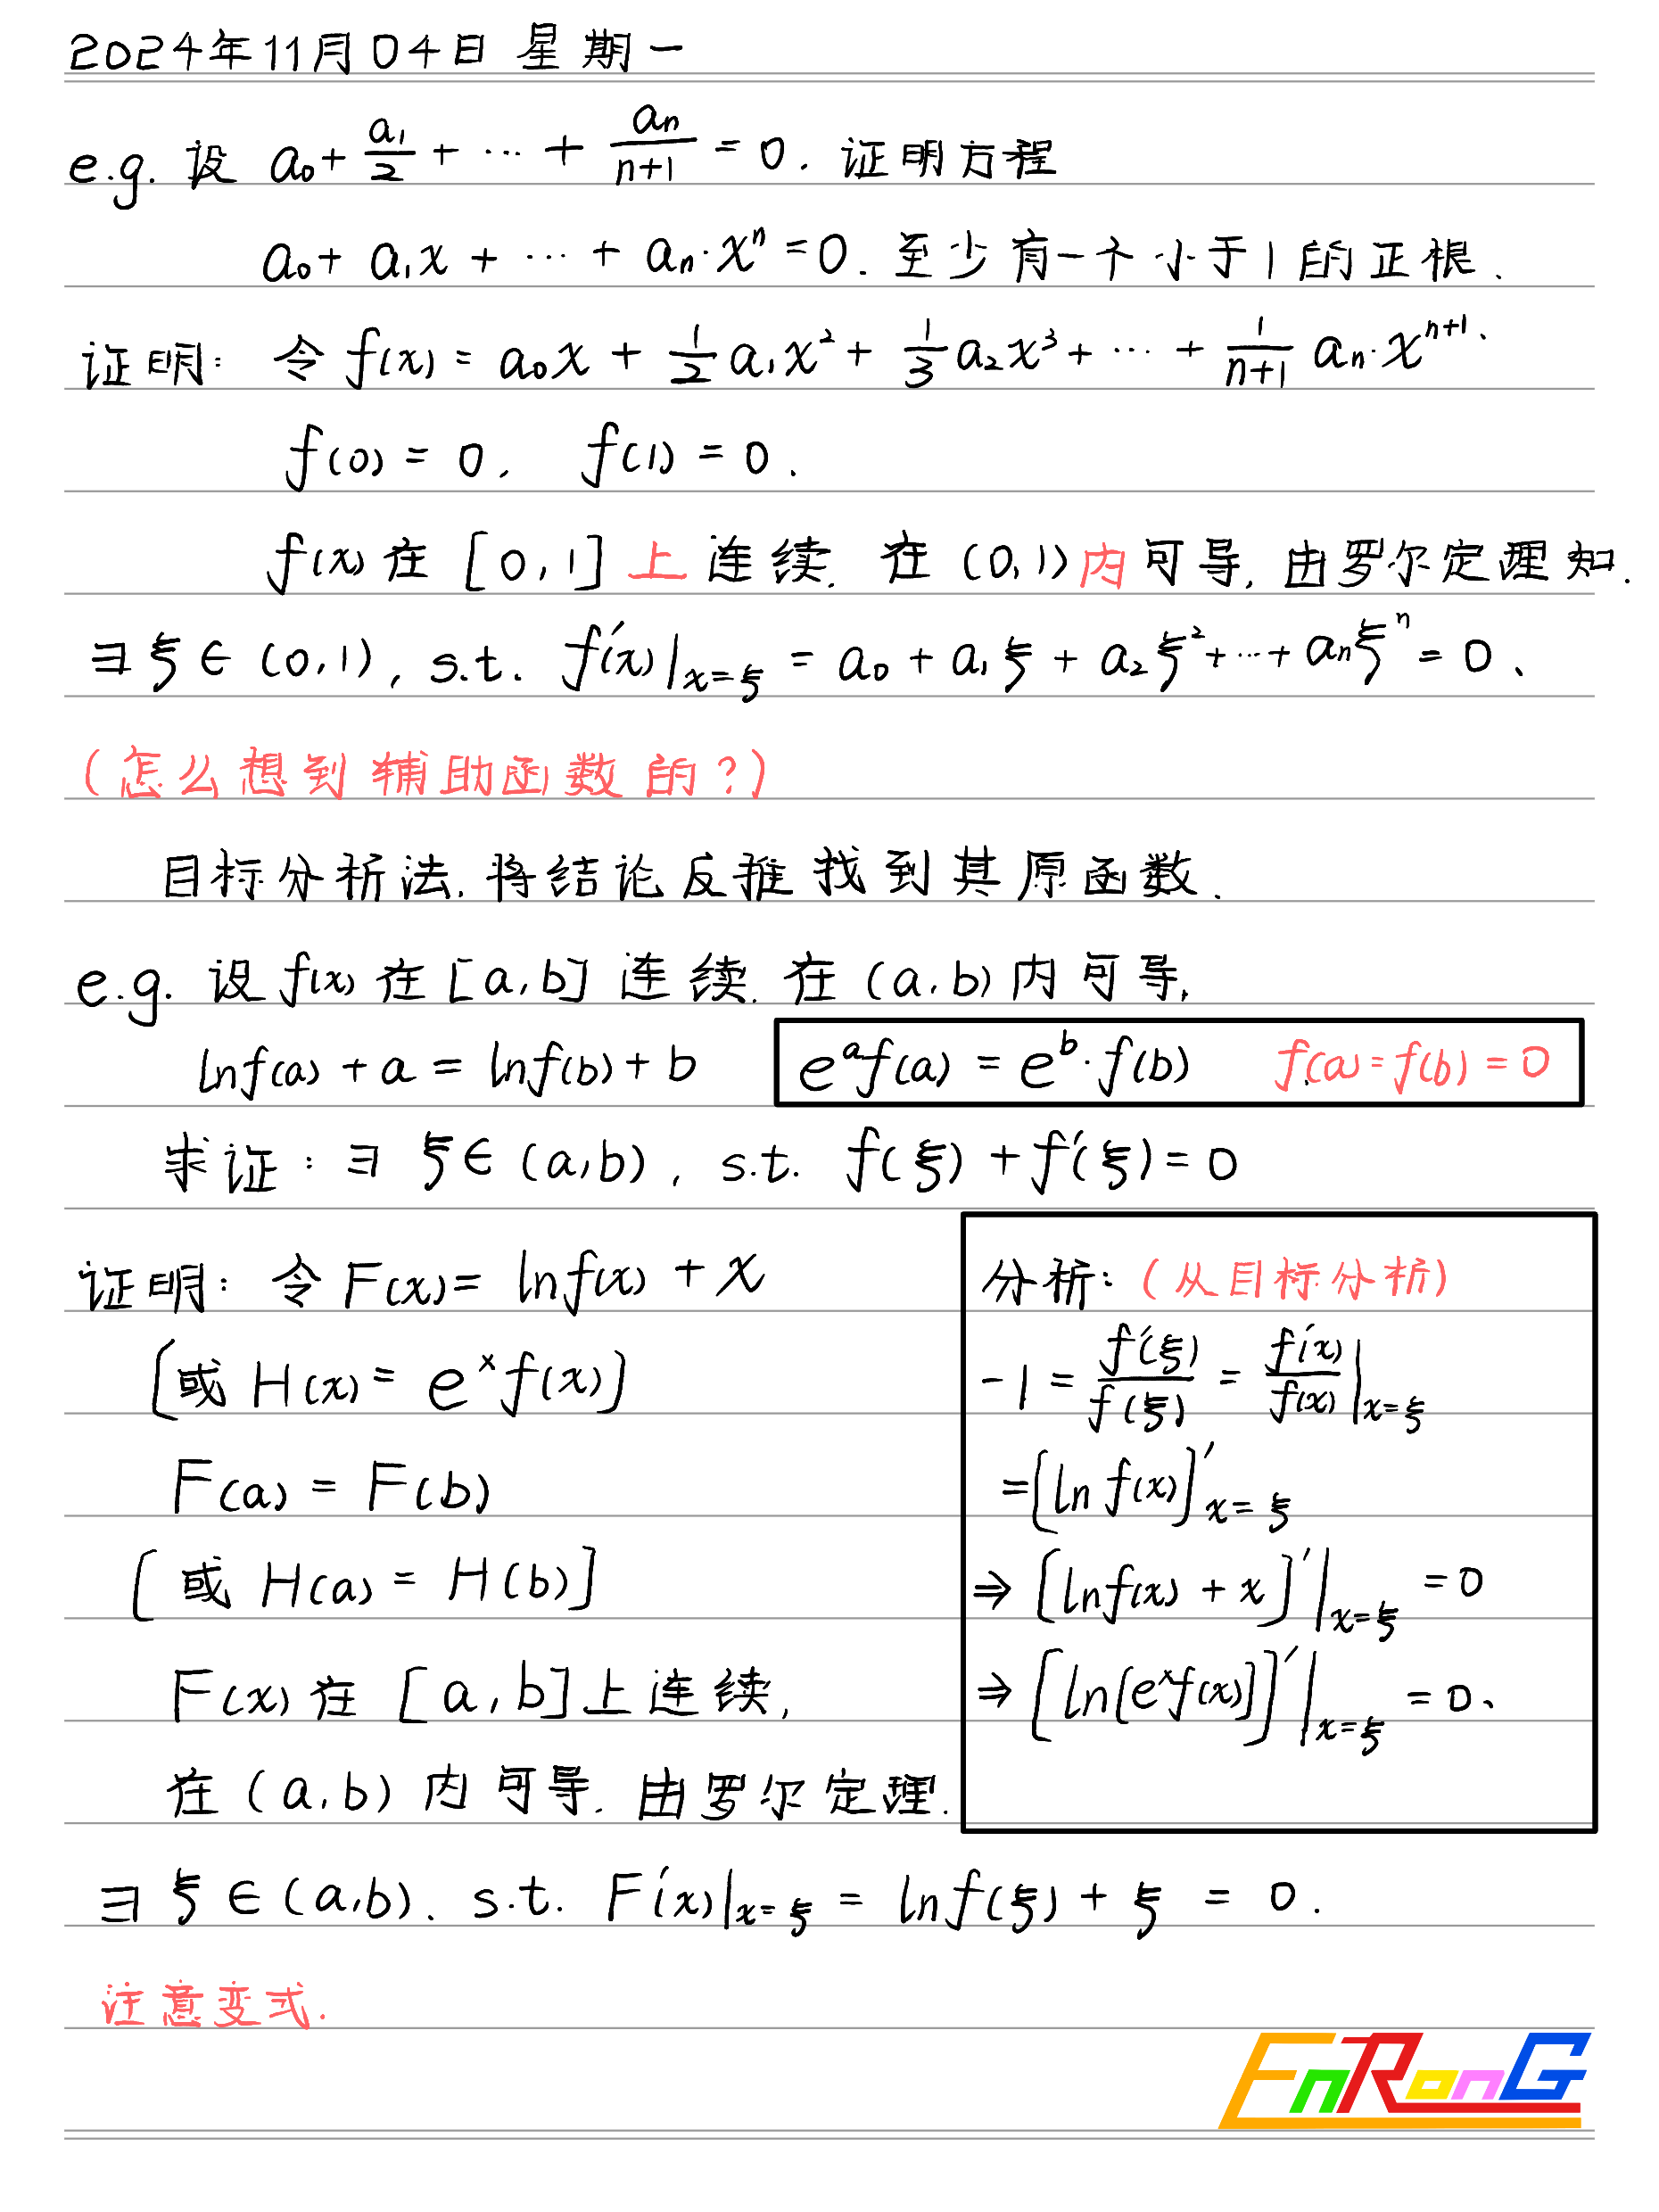 2024年11月04日 星期一
e.g. 设 a₀ + a₁/2 + ⋯ + aₙ/(n+1) = 0. 证明方程
a₀ + a₁x + ⋯ + aₙ·xⁿ = 0. 至少有一个小于1的正根.
证明: 令 f(x) = a₀x + 1/2 a₁x² + 1/3 a₂x³ + ⋯ + 1/(n+1) aₙ·xⁿ⁺¹.
f(0) = 0, f(1) = 0.
f(x) 在 [0,1] 上连续. 在 (0,1) 内可导, 由罗尔定理知.
∃ ξ ∈ (0,1), s.t. f′(x)|ₓ₌ξ = a₀ + a₁ξ + a₂ξ² + ⋯ + aₙξⁿ = 0.
(怎么想到辅助函数的?)
目标分析法. 将结论反推找到其原函数.
e.g. 设 f(x) 在 [a,b] 连续. 在 (a,b) 内可导.
lnf(a) + a = lnf(b) + b
eᵃf(a) = eᵇ·f(b) f(a) = f(b) = 0
求证: ∃ ξ ∈ (a,b), s.t. f(ξ) + f′(ξ) = 0
证明: 令 F(x) = lnf(x) + x
[或 H(x) = eˣf(x)]
F(a) = F(b)
[或 H(a) = H(b)]
F(x) 在 [a,b] 上连续,
在 (a,b) 内可导. 由罗尔定理.
分析: (从目标分析)
-1 = f′(ξ)/f(ξ) = f′(x)/f(x)|ₓ₌ξ
= [ln f(x)]′ₓ₌ξ
⇒ [lnf(x) + x]′|ₓ₌ξ = 0
⇒ [ln[eˣf(x)]]′|ₓ₌ξ = 0.
∃ ξ ∈ (a,b). s.t. F′(x)|ₓ₌ξ = lnf(ξ) + ξ = 0.
注意变式.
EnRonG